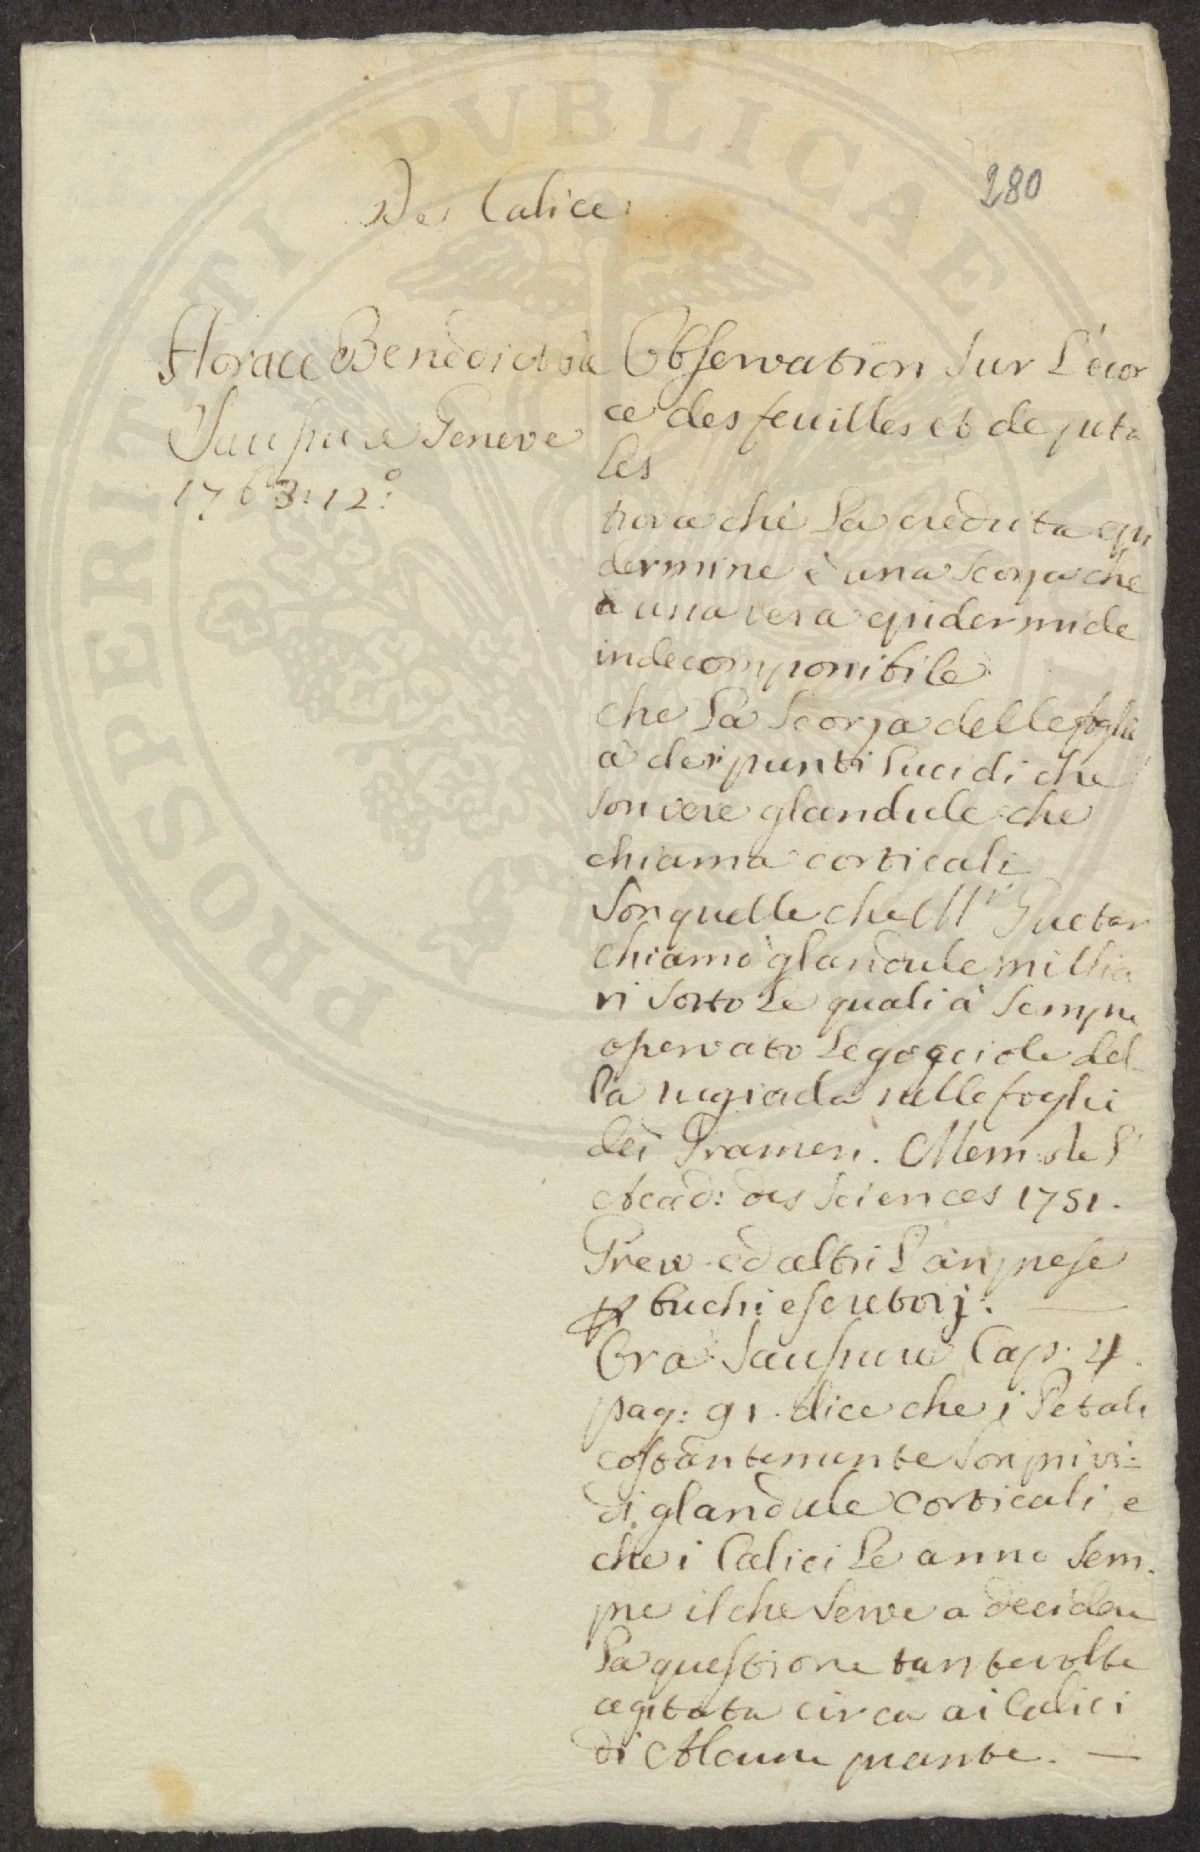 280
De Calice
Horace Benedict de
Saussure Geneve
1763: 12.º
Observation sur L'écor
ce des feuilles et de peta
les
trova che La creduta epi
dermine è una Scorza che
à una vera epidermide
indecomponibile
che La Scorza delle foglie
à dei punti Lucidi che
Son vere glandule che
chiama corticali
Son quelle che Mr Guetar
chiamò glandule millia
ri Sotto Le quali à Sempre
osservato Le gocciole del
La rugiada nelle foglie
dei Gramen. Mem: de L'
Acad: des Sciences 1751.
Grew ed altri L'an prese
p buchi escretorj.
Ora Saussure Cap. 4.
pag: 91. dice che i Petali
costantemente Son privi
di glandule corticali e
che i Calici Le anno Sem
pre il che Serve a decidere
La questione tante volte
agitata circa ai Calici
di Alcune piante.
PROSPERITATI PVBLICAE